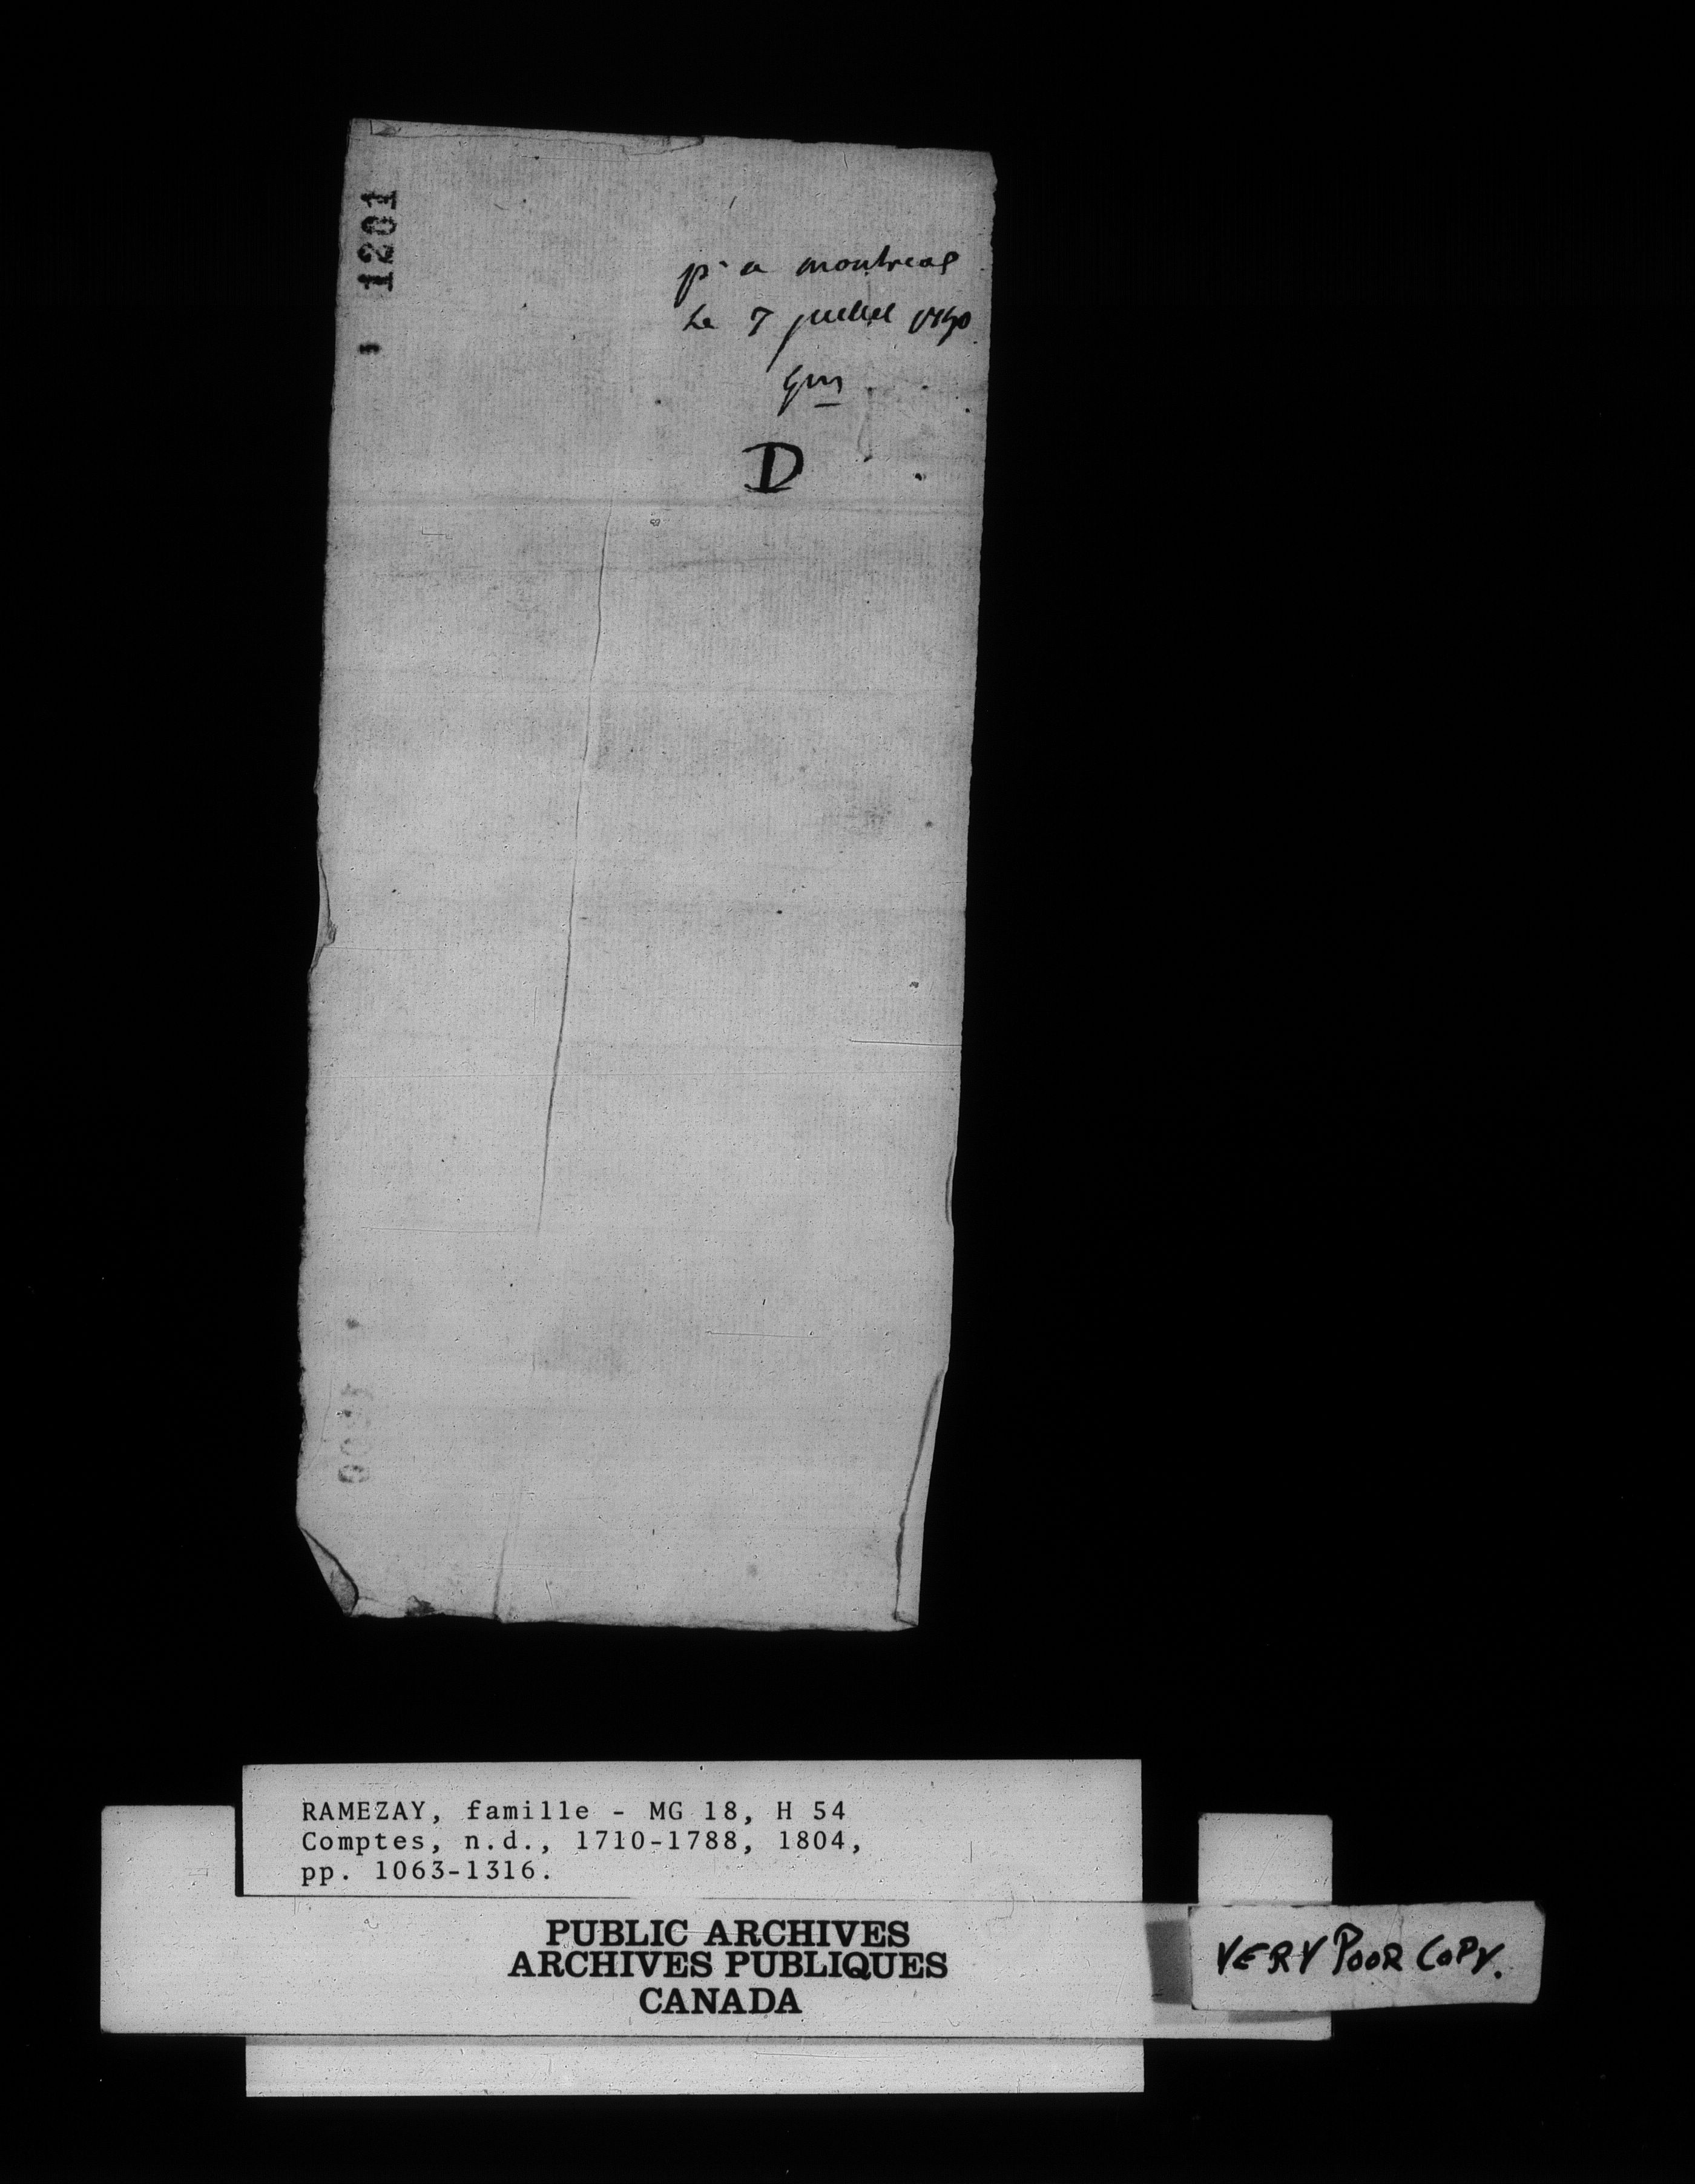 1201
pr a montreal
Le 7 juillet 1740
D
RAMEZAY, famille - MG 18, H 54
Comptes, n.d., 1710-1788, 1804,
pp. 1063-1316.
PUBLIC ARCHIVES
ARCHIVES PUBLIQUES
CANADA
VERY POOR COPY.